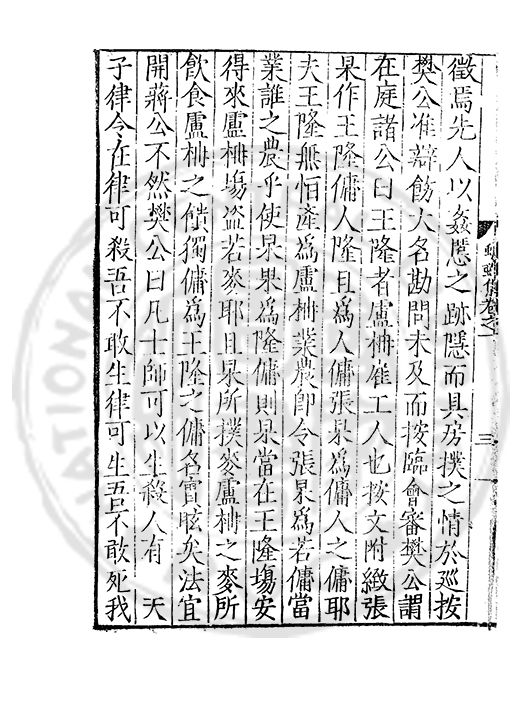 徵焉先人以姦慝之跡隱而具房撲之情於廵按
樊公准辯飭大名勘問未及而按臨會審樊公謂
在庭諸公曰王隆者盧柟雇工人也按文附緻張
杲作王隆傭人隆且為人傭張杲為傭人之傭耶
夫王隆無恒產為盧柟業農即令張杲為若傭當
業誰之農乎使杲果為隆傭則杲當在王隆塲安
得來盧柟塲盗若麥耶且杲所撲麥盧柟之麥所
飲食盧柟之饋獨傭為王隆之傭名實眩矣法宜
開蔣公不然樊公曰凡士師可以生殺人有 天
子律令在律可殺吾不敢生律可生吾不敢死我
蠛蠓集卷之一
三